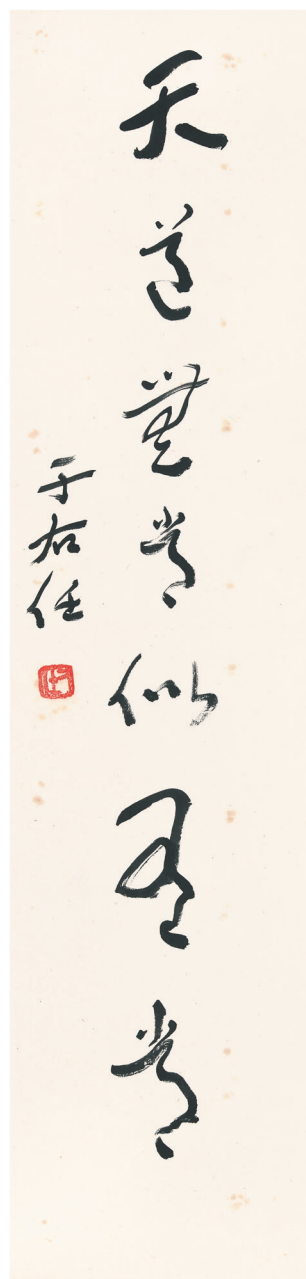 天道無常似有常
于右任